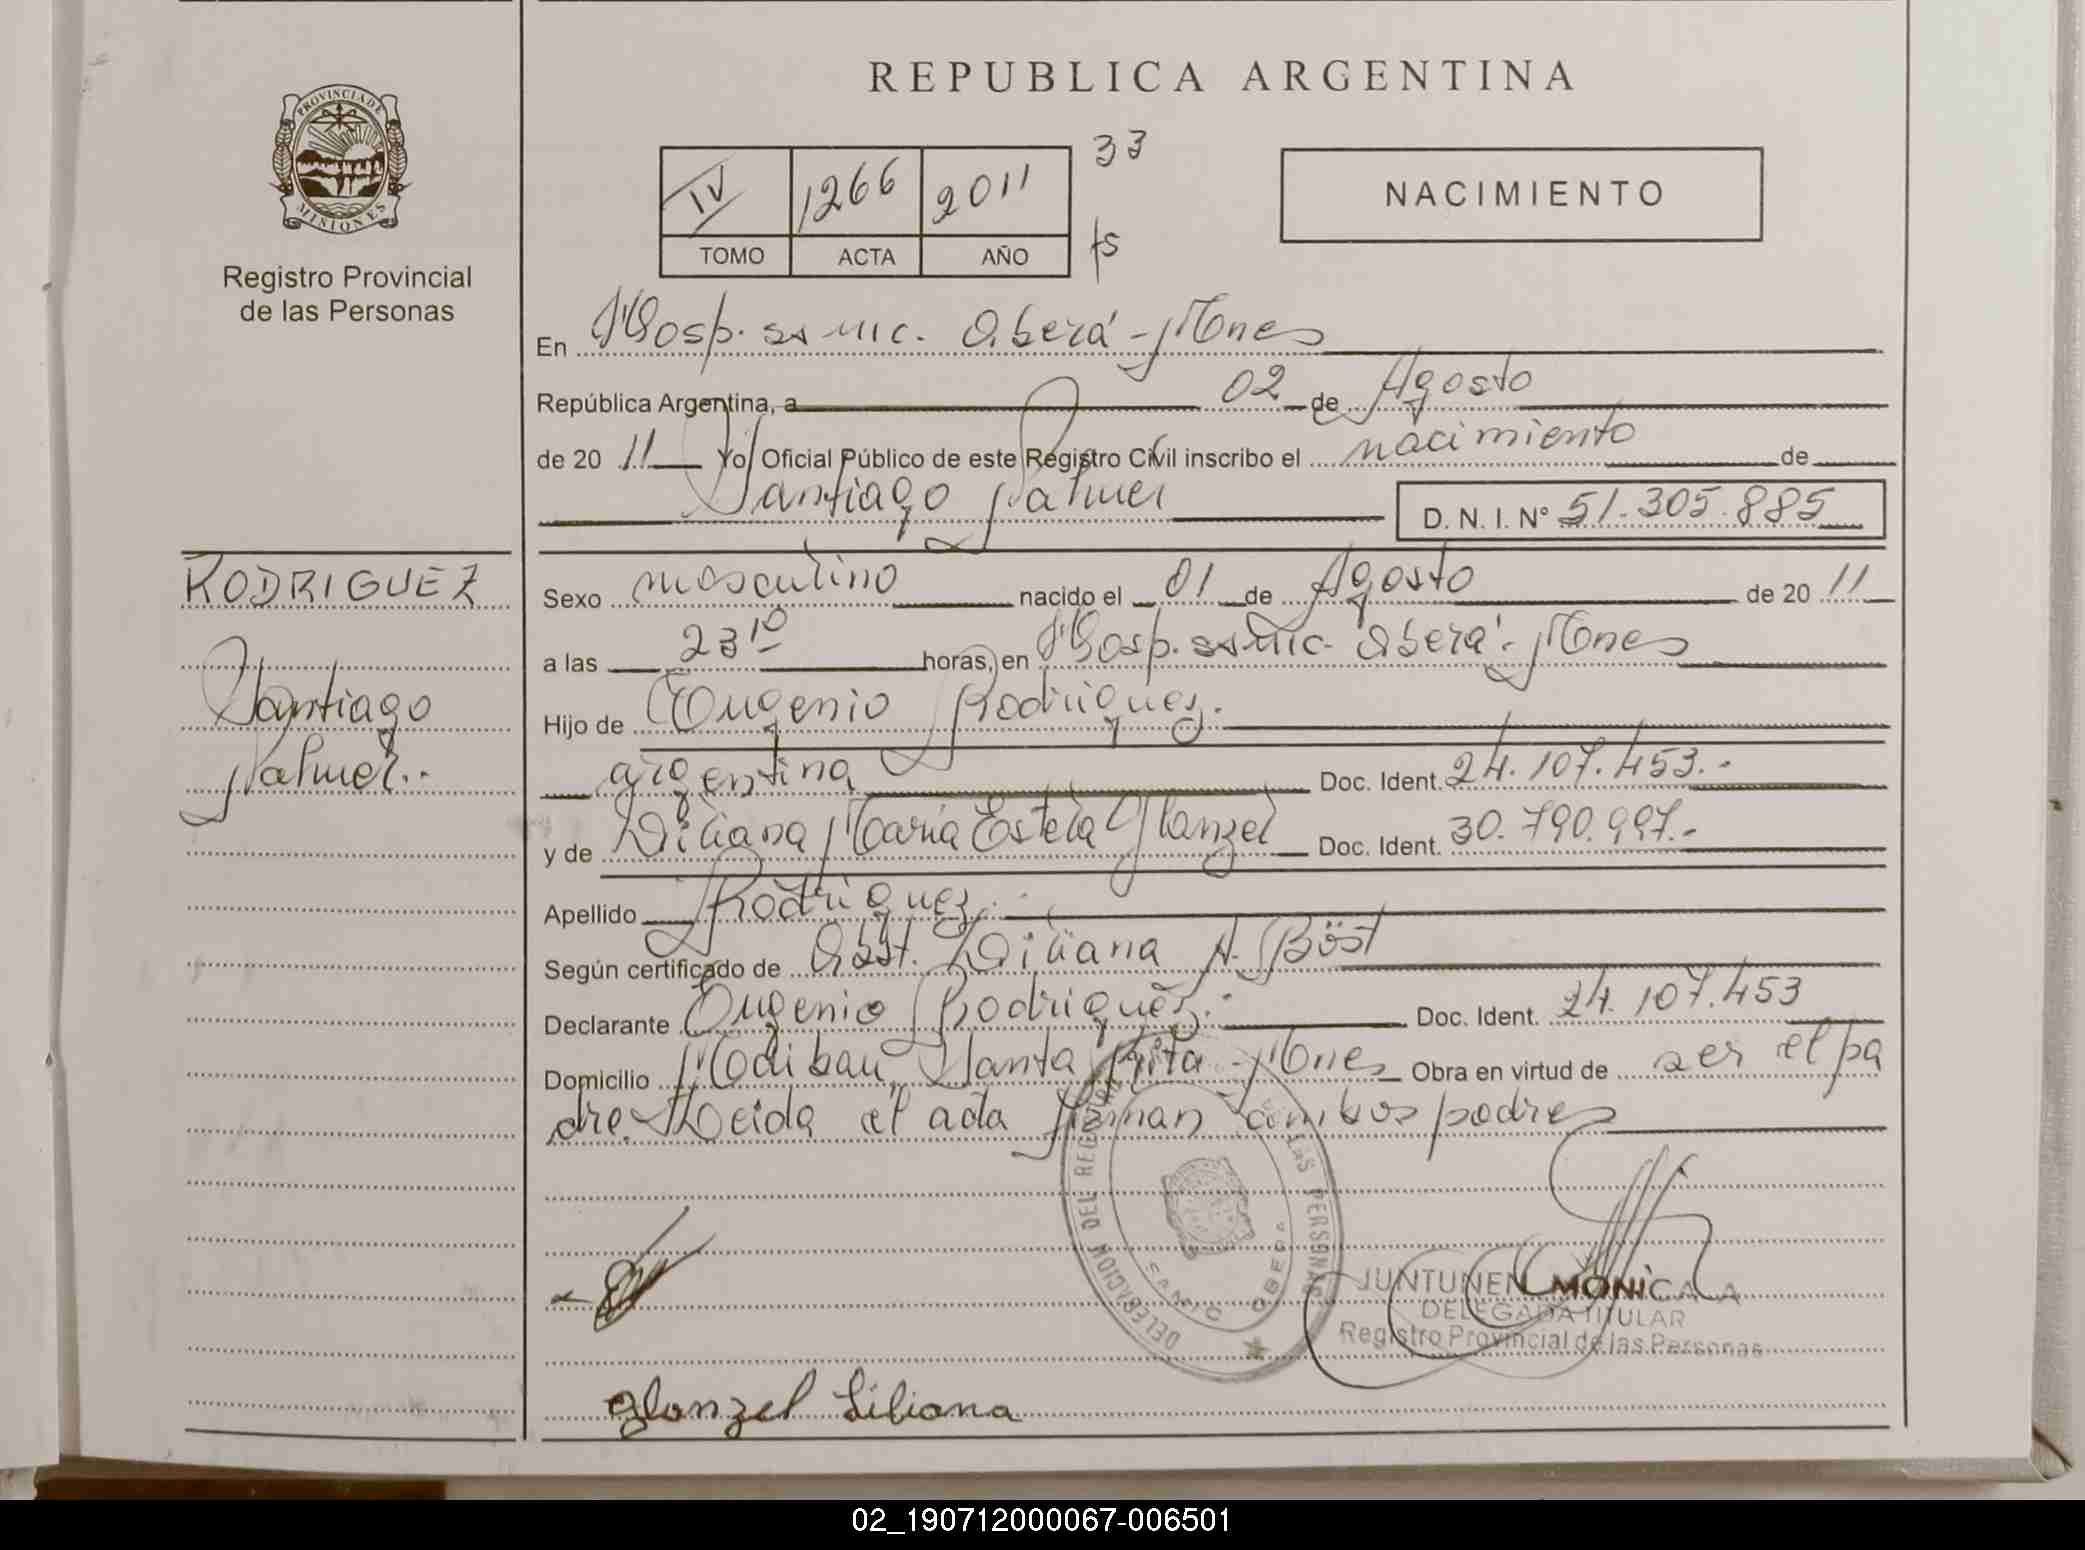 REPUBLICA ARGENTINA
PROVINCIA DE
MISIONES
Registro Provincial
de las Personas
IV 1266 2011 33
TOMO ACTA AÑO fs
NACIMIENTO
En Hosp. ssmic. Oberá - Mnes
República Argentina, a 02 de Agosto
de 20 11 Yo Oficial Público de este Registro Civil inscribo el nacimiento de
Santiago D. N. I. Nº 51.305.885
RODRIGUEZ
Santiago
Sexo masculino nacido el 01 de Agosto de 20 11
a las 23 10 horas, en Hosp. ssmic. Oberá - Mnes
Hijo de Eugenio Rodriguez.
argentina Doc. Ident. 24.107.453.-
y de Liliana Maria Estela Glanzel Doc. Ident. 30.790.997.-
Apellido Rodriguez
Según certificado de Obst. Liliana A. Böst
Declarante Eugenio Rodriguez. Doc. Ident. 24.107.453
Domicilio Santa Rita - Mnes Obra en virtud de ser el pa
dre. Leida el acta firman ambos padres
DELEGACION DEL REG LAS PERSONAS
OBERA
JUNTUNEN MONICA A
DELEGADA TITULAR
Registro Provincial de las Personas
Glanzel Liliana
02_190712000067-006501